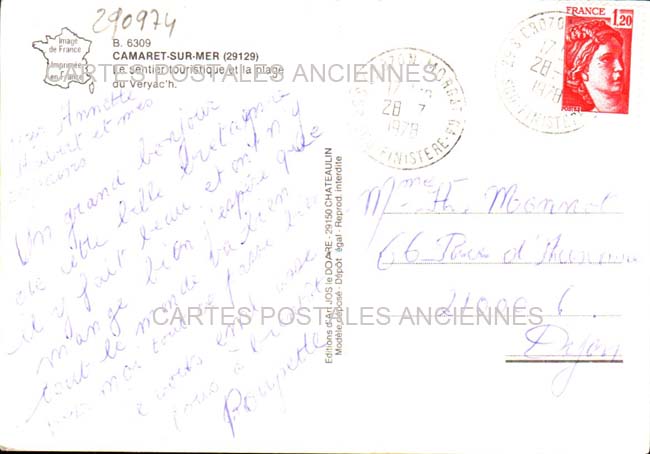 290974
Image
de France
Imprimée
en France
B. 6309
CAMARET-SUR-MER (29129)
Le sentier touristique et la plage
du Veryac'h.
CARTES POSTALES ANCIENNES
FRANCE
1,20
CROZON MORGAT
17
28 - 7
1978
FINISTERE
Annette
Hubert et mes
Un grand bonjour
de cette belle bretagne
il y fait beau et on n y
mange bien j'espère que
tout le monde va bien
pour moi tout se passe bien
a bientôt
Poupette
Editions d'Art JOS le DOARE - 29150 CHATEAULIN
Modèle déposé - Dépôt légal - Reprod. interdite
Mme Monnot
66 d'
21000
Dijon
CARTES POSTALES ANCIENNES